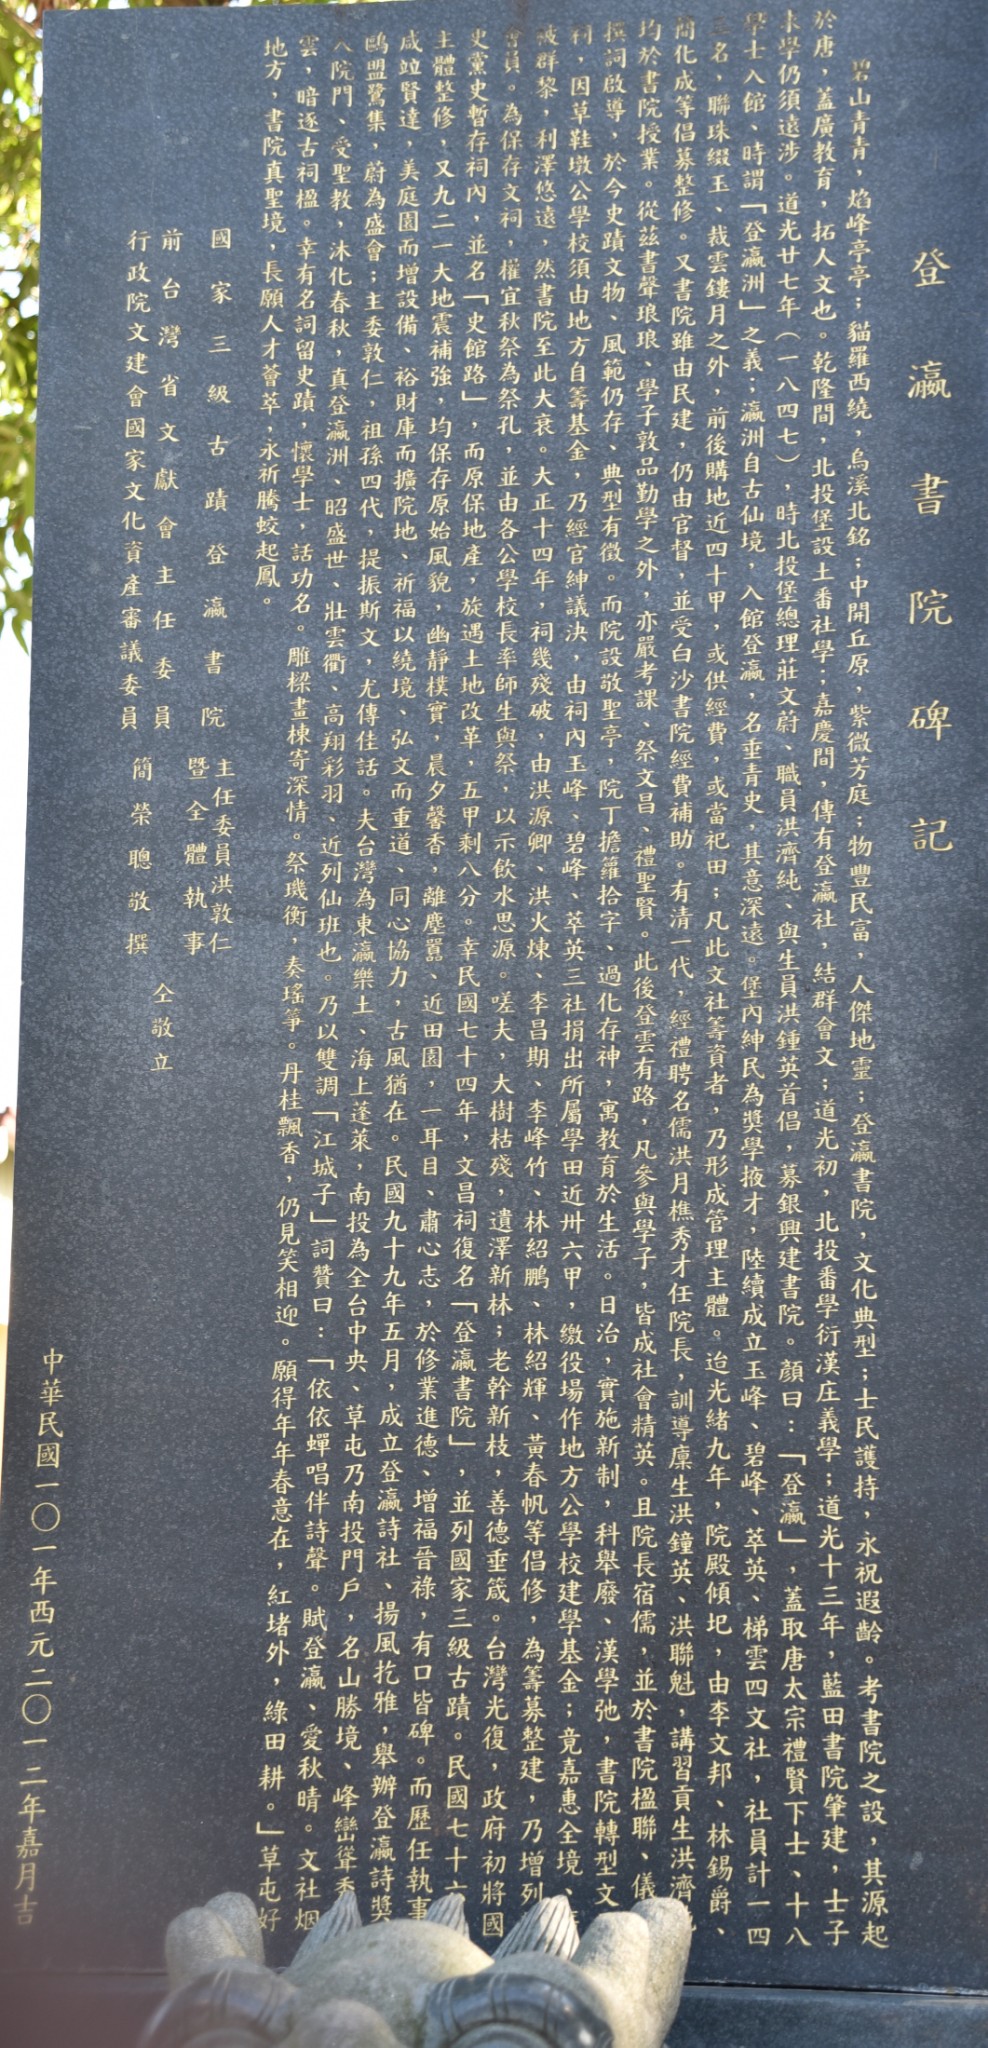 登瀛書院碑記
碧山青青，焰峰亭亭；貓羅西繞，烏溪北銘；中開丘原，紫微芳庭；物豐民富，人傑地靈；登瀛書院，文化典型；士民護持，永祝遐齡。考書院之設，其源起
於唐，蓋廣教育，拓人文也。乾隆間，北投堡設土番社學；嘉慶間，傳有登瀛社，結群會文；道光初，北投番學衍漢庄義學；道光十三年，藍田書院肇建，士子
來學仍須遠涉。道光廿七年（一八四七），時北投堡總理莊文蔚、職員洪濟純、與生員洪鍾英首倡，募銀興建書院。顏曰：「登瀛」，蓋取唐太宗禮賢下士、十八
學士入館、時謂「登瀛洲」之義；瀛洲自古仙境，入館登瀛，名垂青史，其意深遠。堡內紳民為獎學掖才，陸續成立玉峰、碧峰、萃英、梯雲四文社，社員計一四
三名，聯珠綴玉、裁雲鏤月之外，前後購地近四十甲，或供經費，或當祀田；凡此文社籌資者，乃形成管理主體。迨光緒九年，院殿傾圯，由李文邦、林錫爵、
簡化成等倡募整修。又書院雖由民建，仍由官督，並受白沙書院經費補助。有清一代，經禮聘名儒洪月樵秀才任院長，訓導廩生洪鐘英、洪聯魁，講習貢生洪濟
均於書院授業。從茲書聲琅琅、學子敦品勤學之外，亦嚴考課、祭文昌、禮聖賢。此後登雲有路，凡參與學子，皆成社會精英。且院長宿儒，並於書院楹聯、儀
撰詞啟導，於今史蹟文物、風範仍存、典型有徵。而院設敬聖亭，院丁擔籮拾字、過化存神，寓教育於生活。日治，實施新制，科舉廢、漢學弛，書院轉型文
祠，因草鞋墩公學校須由地方自籌基金，乃經官紳議決，由祠內玉峰、碧峰、萃英三社捐出所屬學田近卅六甲，繳役場作地方公學校建學基金；竟嘉惠全境、
被群黎，利澤悠遠，然書院至此大衰。大正十四年，祠幾殘破，由洪源卿、洪火煉、李昌期、李峰竹、林紹鵬、林紹輝、黃春帆等倡修，為籌募整建，乃增列
會員。為保存文祠，權宜秋祭為祭孔，並由各公學校長率師生與祭，以示飲水思源。嗟夫，大樹枯殘，遺澤新林；老幹新枝，善德垂箴。台灣光復，政府初將國
史黨史暫存祠內，並名「史館路」，而原保地產，旋遇土地改革，五甲剩八分。幸民國七十四年，文昌祠復名「登瀛書院」，並列國家三級古蹟。民國七十六
主體整修，又九二一大地震補強，均保存原始風貌，幽靜樸實，晨夕馨香，離塵囂、近田園，一耳目、肅心志，於修業進德、增福晉祿，有口皆碑。而歷任執事
咸竝賢達，美庭園而增設備、裕財庫而擴院地、祈福以繞境、弘文而重道、同心協力，古風猶在。民國九十九年五月，成立登瀛詩社、揚風扢雅，舉辦登瀛詩獎
鷗盟鷺集，蔚為盛會；主委敦仁，祖孫四代，提振斯文，尤傳佳話。夫台灣為東瀛樂土、海上蓬萊，南投為全台中央、草屯乃南投門戶，名山勝境、峰巒聳秀
入院門、受聖教，沐化春秋，真登瀛洲、昭盛世、壯雲衢、高翔彩羽、近列仙班也。乃以雙調「江城子」詞贊曰：「依依蟬唱伴詩聲。賦登瀛、愛秋晴。文社烟
雲，暗逐古祠楹。幸有名詞留史蹟，懷學士，話功名。雕樑畫棟寄深情。祭璣衡，奏瑤箏。丹桂飄香，仍見笑相迎。願得年年春意在，紅堵外，綠田耕。」草屯好
地方，書院真聖境，長願人才薈萃，永祈騰蛟起鳳。
國家三級古蹟登瀛書院 主任委員洪敦仁
暨全體執事 仝敬立
前台灣省文獻會主任委員
行政院文建會國家文化資產審議委員 簡榮聰敬撰
中華民國一〇一年西元二〇一二年嘉月吉